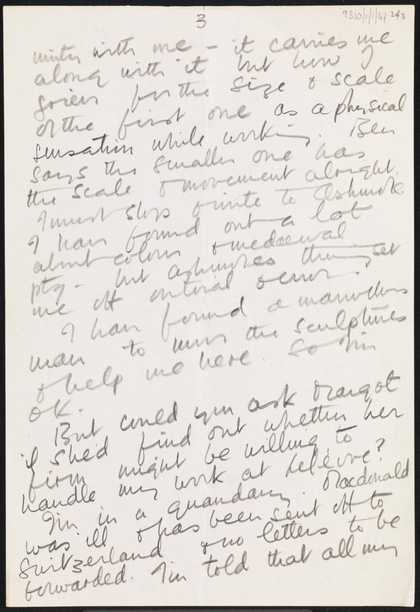 3
with me – it carries me
along with it but how I
grieve for the size & scale
of the first one as a physical
sensation while working. Ben
says the smaller one has
the scale & movement alright.
I must stop & write to Ashmole
I have found out a lot
about colour & mediaeval
ptg – but Ashmoles thing set
me off on
I have found a marvellous
man to move the sculptures
& help me here. So I'm
OK.
But could you ask Margot
if she'd find out whether her
firm might be willing to
handle my work at Lefevre?
I'm in a quandary. Macdonald
was ill & has been sent off to
Switzerland & no letters to be
forwarded. I'm told that all my